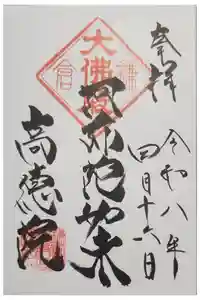 奉拝
令和八年
四月十六日
阿弥陀如来
高徳院
大佛殿